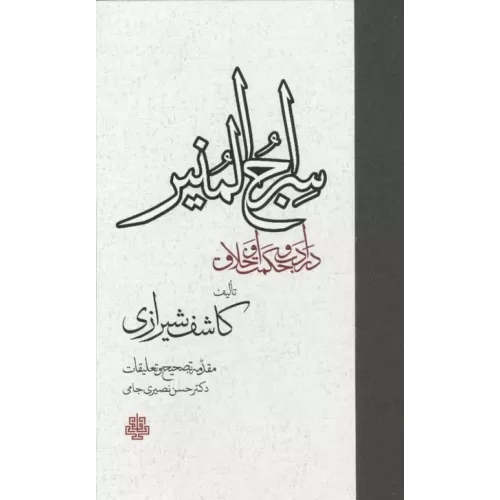 سِراجُ المُنیر
در ادب و حکمت و اخلاق
تألیف
کاشف شیرازی
مقدّمه، تصحیح و تعلیقات
دکتر حسن نصیری جامی